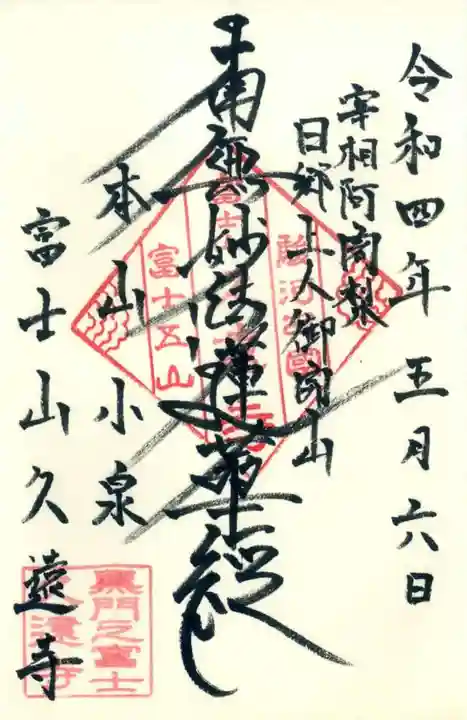 令和四年五月六日
宰相阿闍梨
日郷上人御開山
南無妙法蓮華経
本山小泉
富士山久遠寺
駿河之國
富士五山
黒門之富士
久遠寺